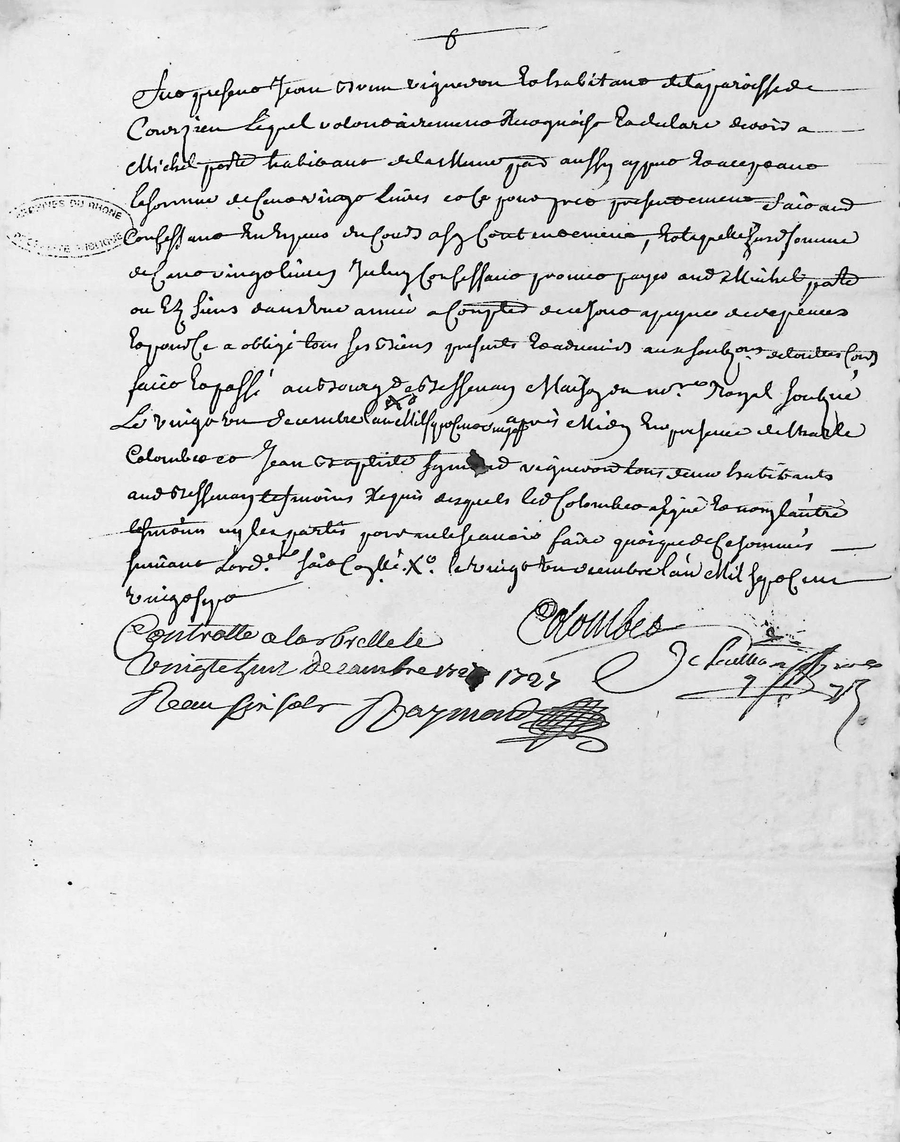 6
Fut present Jean Brun vigneron et habitant de la paroisse de
Courzieu lequel volontairement recognoist et declare devoir a
Michel pate habitant de la mesme par aussy apnt et acceptant
la somme de Cent vingt livres et ce pour prest presentement fait aud
Confessant en especes du Cours a son Contentement, et laquelle susd somme
de Cent vingt livres led Confessant promet payer aud Michel pate
ou es siens dans une année a Compter de
et pour Ce a obligé tous ses biens presents et advenirs aux soubons de toutes Cours
fait et passé au bourg de Bessenay Maison du nore Royal soubzné
Le vingt un decembre l'an Mil sept Cent vingt après Midy En presence de
Colombet et Jean Baptiste vignerons tous deux habitants
aud Bessenay tesmoins requis desquels led Colombet a signé et non l'autre
tesmoin ny les parties pour ne le scavoir faire quoique de Ce sommés
suivant Lord.ce fait Cotté. Xo. le vingt un decembre l'an Mil sept Cent
vingt sept
Colombet
Controlle a la brelle le
vingt huit decembre 1727
Raymond
ARCHIVES DU RHONE